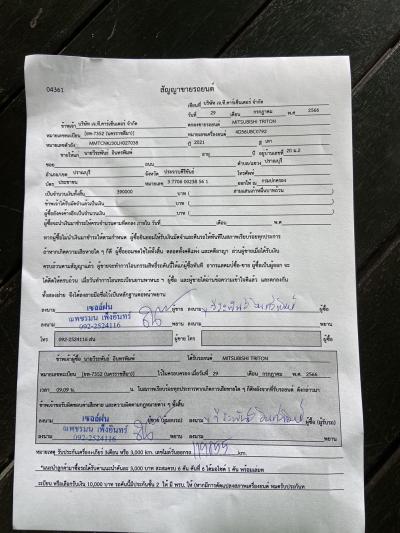 04361
สัญญาขายรถยนต์
เขียนที่ บริษัท เจ.ที.คาร์เซ็นเตอร์ จำกัด
วันที่ 29 เดือน กรกฎาคม พ.ศ. 2566
ข้าพเจ้า บริษัท เจ.ที.คาร์เซ็นเตอร์ จำกัด ตกลงขายรถยนต์ MITSUBISHI TRITON
หมายเลขทะเบียน (ขท-7352 (นครราชสีมา)) หมายเลขเครื่องยนต์ 4D56UBC0792
หมายเลขตัวถัง MMTCNKJ30LH027038 ปี 2021 สี เทา
ขายให้แก่ นายวีระพันธ์ อินทรพิมพ์ อายุ ปี อยู่บ้านเลขที่ 20 ม.2
ซอย ถนน ตำบล/แขวง ปราณบุรี
อำเภอ/เขต ปราณบุรี จังหวัด ประจวบคีรีขันธ์ โทรศัพท์
บัตร ประชาชน หมายเลข 3 7706 00238 54 1 ออกให้ ณ กรมปกครอง
เป็นจำนวนเงินทั้งสิ้น 390000 บาท ( สามแสนเก้าหมื่นบาทถ้วน )
ข้าพเจ้าได้รับมัดจำแล้วเป็นเงิน บาท ( )
ผู้ซื้อยังคงค้างอยู่เป็นจำนวนเงิน บาท ( )
ผู้ซื้อจะนำเงินมาชำระให้ครบจำนวนตามที่ตกลง ภายใน วันที่ เดือน พ.ศ.
หากผู้ซื้อไม่นำเงินมาชำระให้ตามกำหนด ผู้ซื้อยินยอมให้ริบเงินมัดจำและคืนรถให้ทันทีในสภาพเรียบร้อยทุกประการ
ถ้าหากเกิดความเสียหายใด ๆ ก็ดี ผู้ซื้อยอมชดใช้ให้ทั้งสิ้น ตลอดทั้งคดีแพ่ง และคดีอาญา ส่วนผู้ขายเมื่อได้รับเงิน
ครบถ้วนตามสัญญาแล้ว ผู้ขายจะทำการโอนกรรมสิทธิ์รถคันนี้ให้แก่ผู้ซื้อทันที
ทั้งสองฝ่าย จึงได้ลงลายมือชื่อไว้เป็นหลักฐานต่อหน้าพยาน
ลงนาม ผู้ขาย ลงนาม วีระพันธ์ อินทรพิมพ์ ผู้ซื้อ
เซลล์ฝน
เพชรมน เพ็งอินทร์
092-2524116
ลงนาม พยาน ลงนาม พยาน
โทร 092-2524116 ฝน ผู้ขาย โทร ผู้ซื้อ
ข้าพเจ้าผู้ซื้อ นายวีระพันธ์ อินทรพิมพ์ ได้รับรถยนต์ MITSUBISHI TRITON
หมายเลขทะเบียน (ขท-7352 (นครราชสีมา)) ไว้ในครอบครอง เมื่อวันที่ 29 เดือน กรกฎาคม พ.ศ. 2566
เวลา 09.09 น. น. ในสภาพเรียบร้อยทุกประการหากเกิดการเสียหายใด ๆ ก็ดีหลังจากที่รับรถยนต์ ดังกล่าวมา
ข้าพเจ้าขอรับผิดชอบค่าเสียหาย และความผิดตามกฎหมายต่าง ๆ ทั้งสิ้น
เซลล์ฝน
เพชรมน เพ็งอินทร์
092-2524116
ลงนาม ผู้ขาย (ผู้มอบรถ) ลงนาม วีระพันธ์ อินทรพิมพ์ ผู้ซื้อ (ผู้รับรถ)
ลงนาม พยาน ลงนาม พยาน
หมายเหตุ รับประกันเครื่อง-เกียร์ 3เดือน หรือ 3,000 km. เลขไมล์วันออกรถ km.